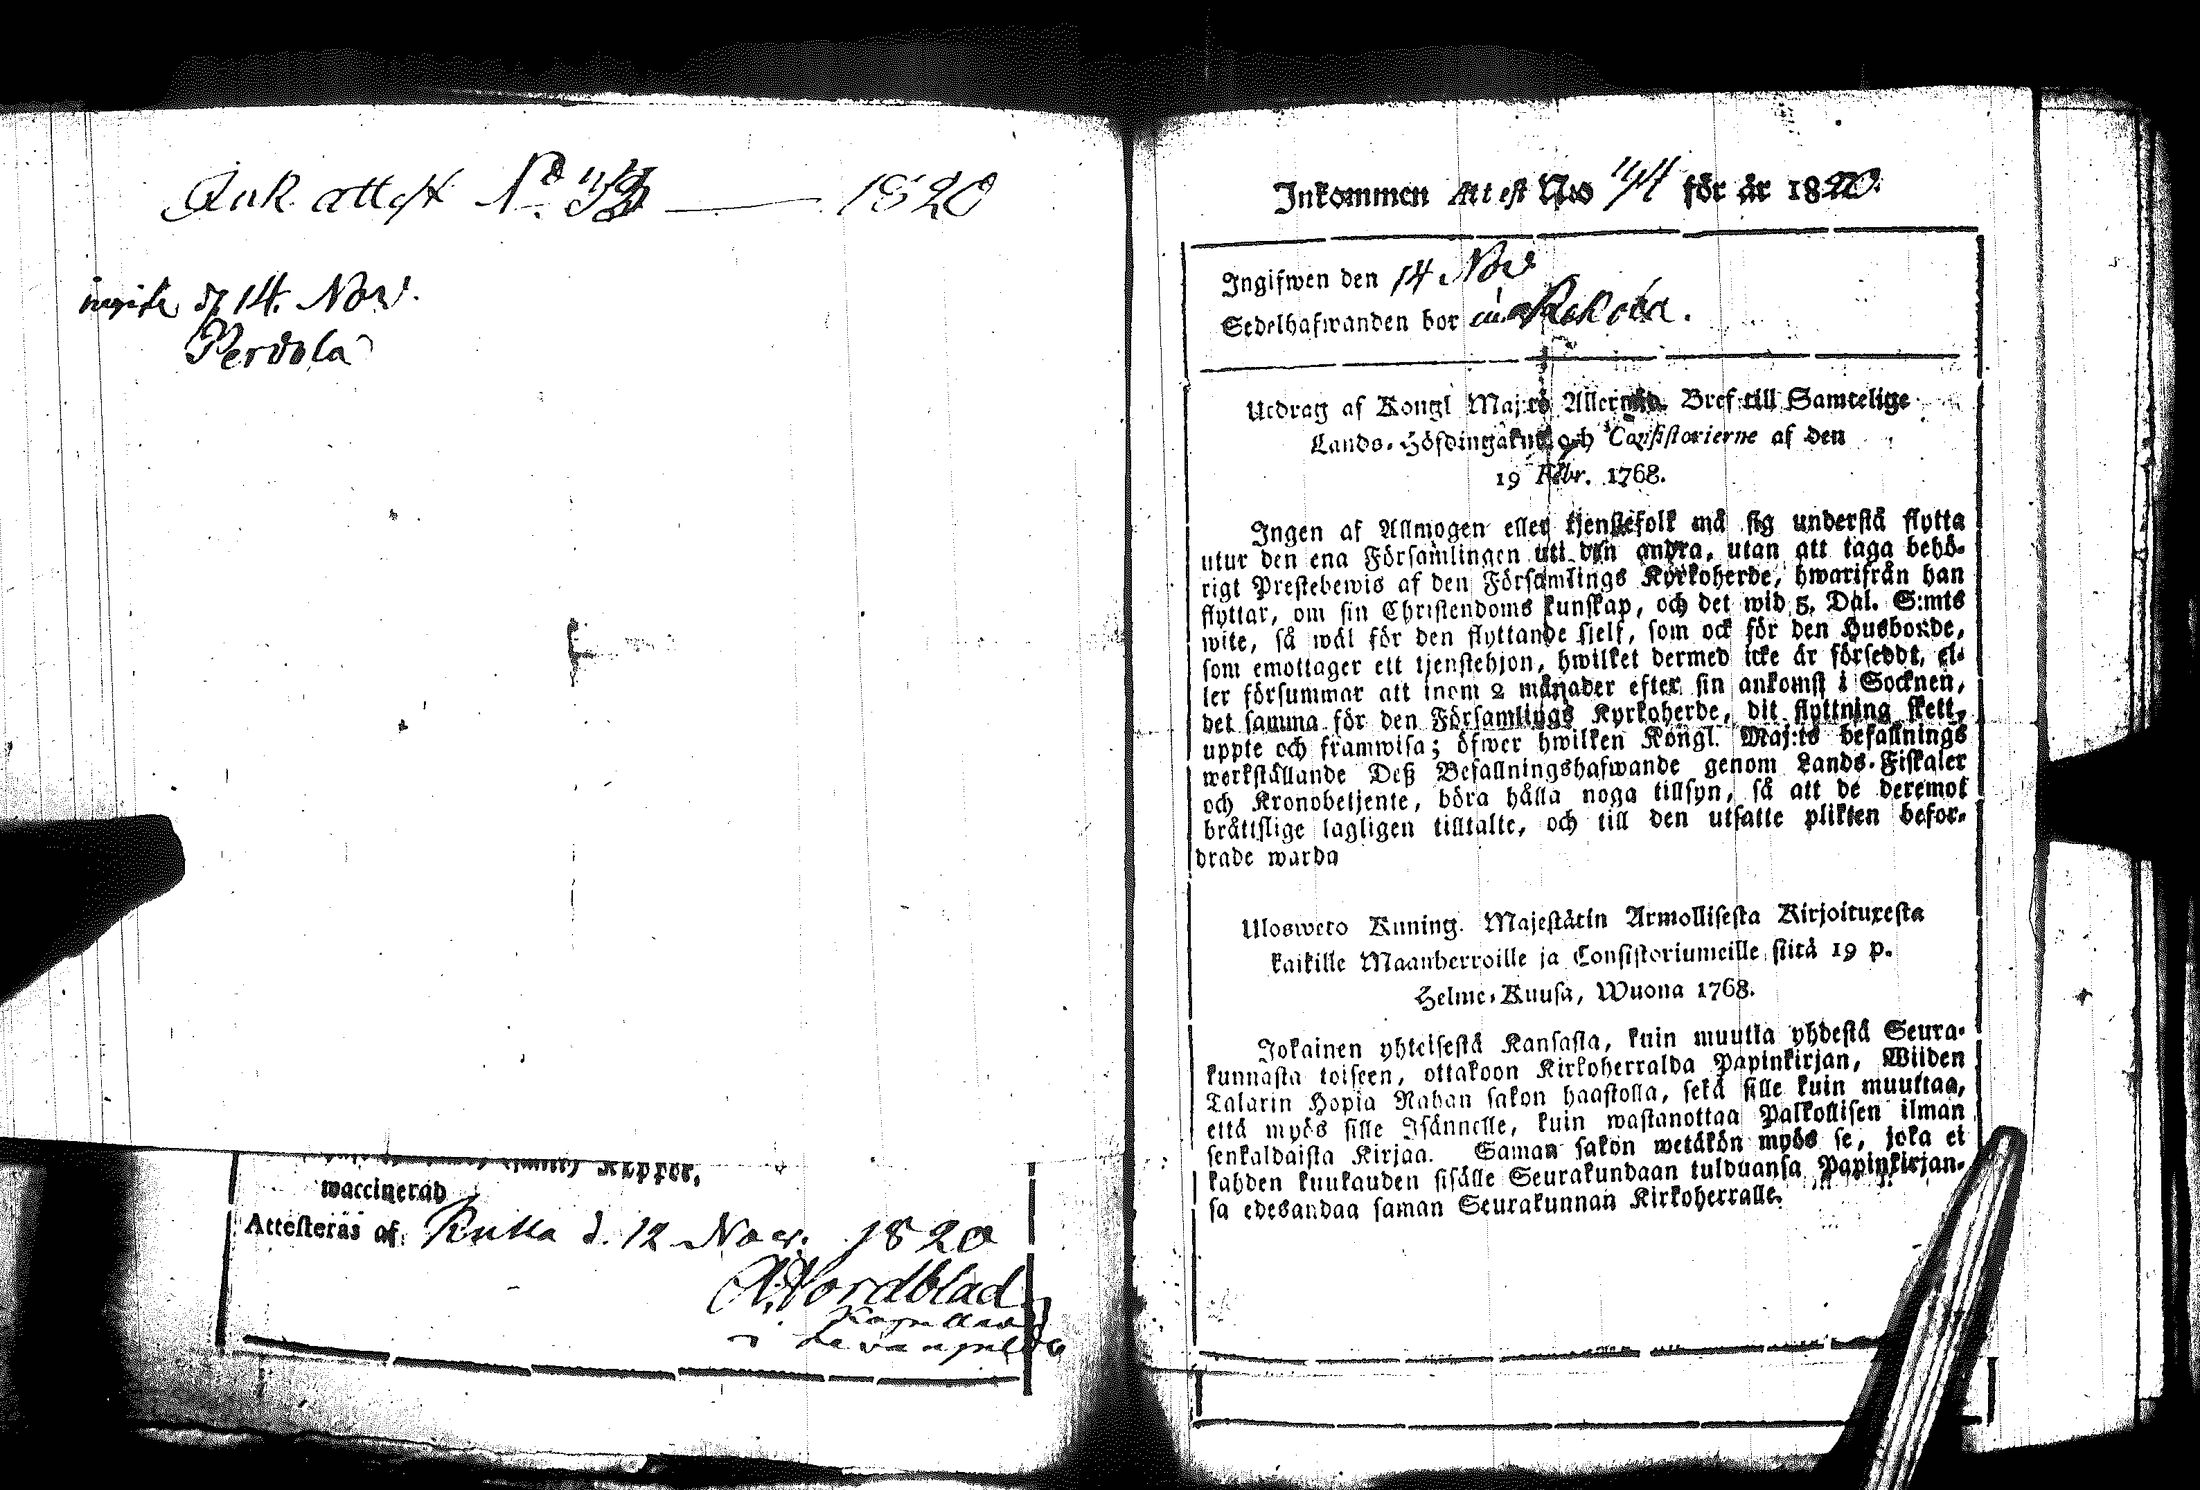 Ink. attest No. 1820
14. Nov.
Perdola
Koppor,
waccinerad
Attesteras af. d. 12 Nov. 1820
A. Nordblad
Inkommen Attest N:o för år 1820.
Ingifwen den 14 Nov
Sedelhafwanden bor
Utdrag af Kongl Maj:ts Allernåd. Bref till Samtelige
Lands-Höfdingarne och Consistorierne af den
19 Febr. 1768.
Ingen af Allmogen eller tjenstefolk må sig understå flytta
utur den ena Församlingen uti den andra, utan att taga behö-
rigt Prestebewis af den Församlings Kyrkoherde, hwarifrån han
flyttar, om sin Christendoms kunskap, och det wid 5. Dal. S:mts
wite, så wäl för den flyttande sjelf, som ock för den Husbonde,
som emottager ett tjenstehjon, hwilket dermed icke är försedt, el-
ler försummar att inom 2 månader efter sin ankomst i Socknen,
det samma för den Församlings Kyrkoherde, dit flyttning skett,
uppte och framwisa; öfwer hwilken Kongl. Maj:ts befallnings
werkställande Deß Befallningshafwande genom Lands-Fiskaler
och Kronobetjente, böra hålla noga tillsyn, så att de deremot
bråttslige lagligen tilltalte, och till den utsatte plikten befor-
drade warda
Ulosweto Kuning. Majestätin Armollisesta Kirjoituxesta
kaikille Maanherroille ja Consistoriumeille siitä 19 p.
Helme-Kuusa, Wuona 1768.
Jokainen yhteisestä Kansasta, kuin muutta yhdestä Seura-
kunnasta toiseen, ottakoon Kirkoherralda Papinkirjan, Wiiden
Talarin Hopia Rahan sakon haastolla, sekä sille kuin muuttaa,
että myös sille Isännelle, kuin wastanottaa Palkollisen ilman
senkaldaista Kirjaa. Saman sakon wetäkön myös se, joka ei
kahden kuukauden sisälle Seurakundaan tulduansa Papinkirjan-
sa edesandaa saman Seurakunnan Kirkoherralle.